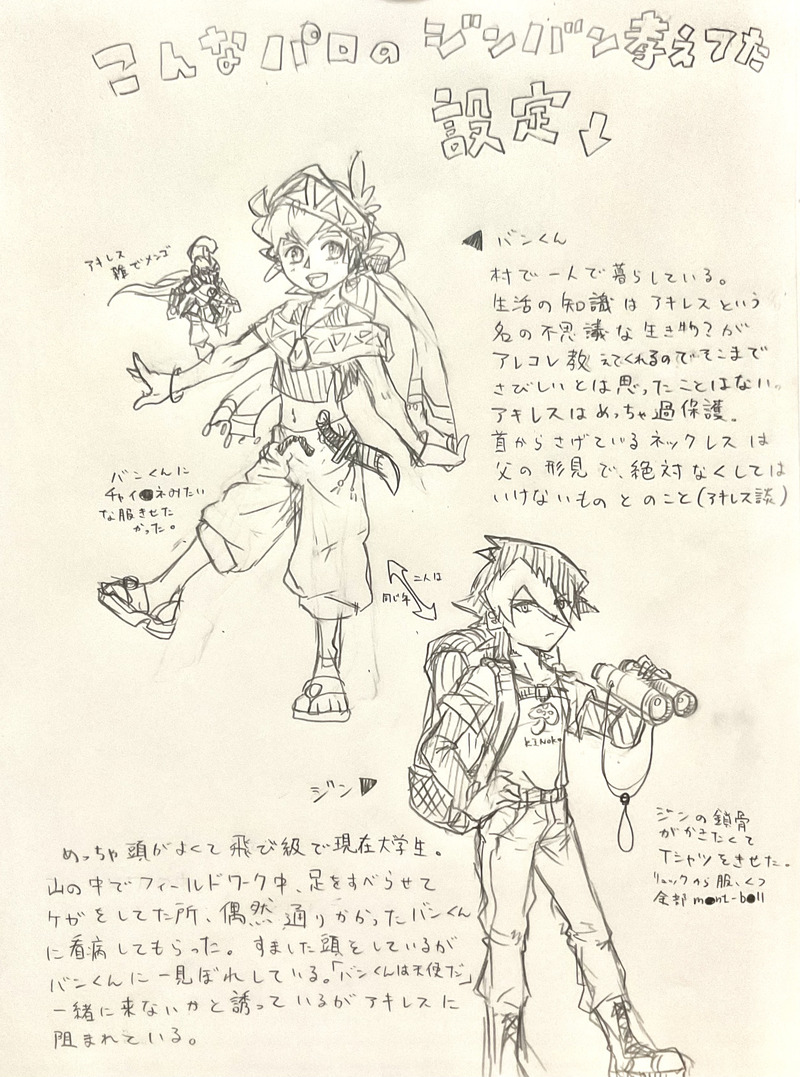 こんなパロのジンバン考えてた
設定↓
アキレス
雑でメンゴ
◀ バンくん
村で一人で暮らしている。
生活の知識はアキレスという
名の不思議な生き物？が
アレコレ教えてくれるのでそこまで
さびしいとは思ったことはない。
アキレスはめっちゃ過保護。
首からさげているネックレスは
父の形見で、絶対なくしては
いけないものとのこと(アキレス談)
バンくんに
チャイ●ネみたい
な服きせた
かった。
二人は
同じ年
KINOKO
ジン▶
めっちゃ頭がよくて飛び級で現在大学生。
山の中でフィールドワーク中、足をすべらせて
ケガをしてた所、偶然通りかかったバンくん
に看病してもらった。すました顔をしているが
バンくんに一見ぼれしている。「バンくんは天使だ」
一緒に来ないかと誘っているがアキレスに
阻まれている。
ジンの鎖骨
がかきたくて
Tシャツをきせた。
リュックから服、くつ
全部mont-b●ll